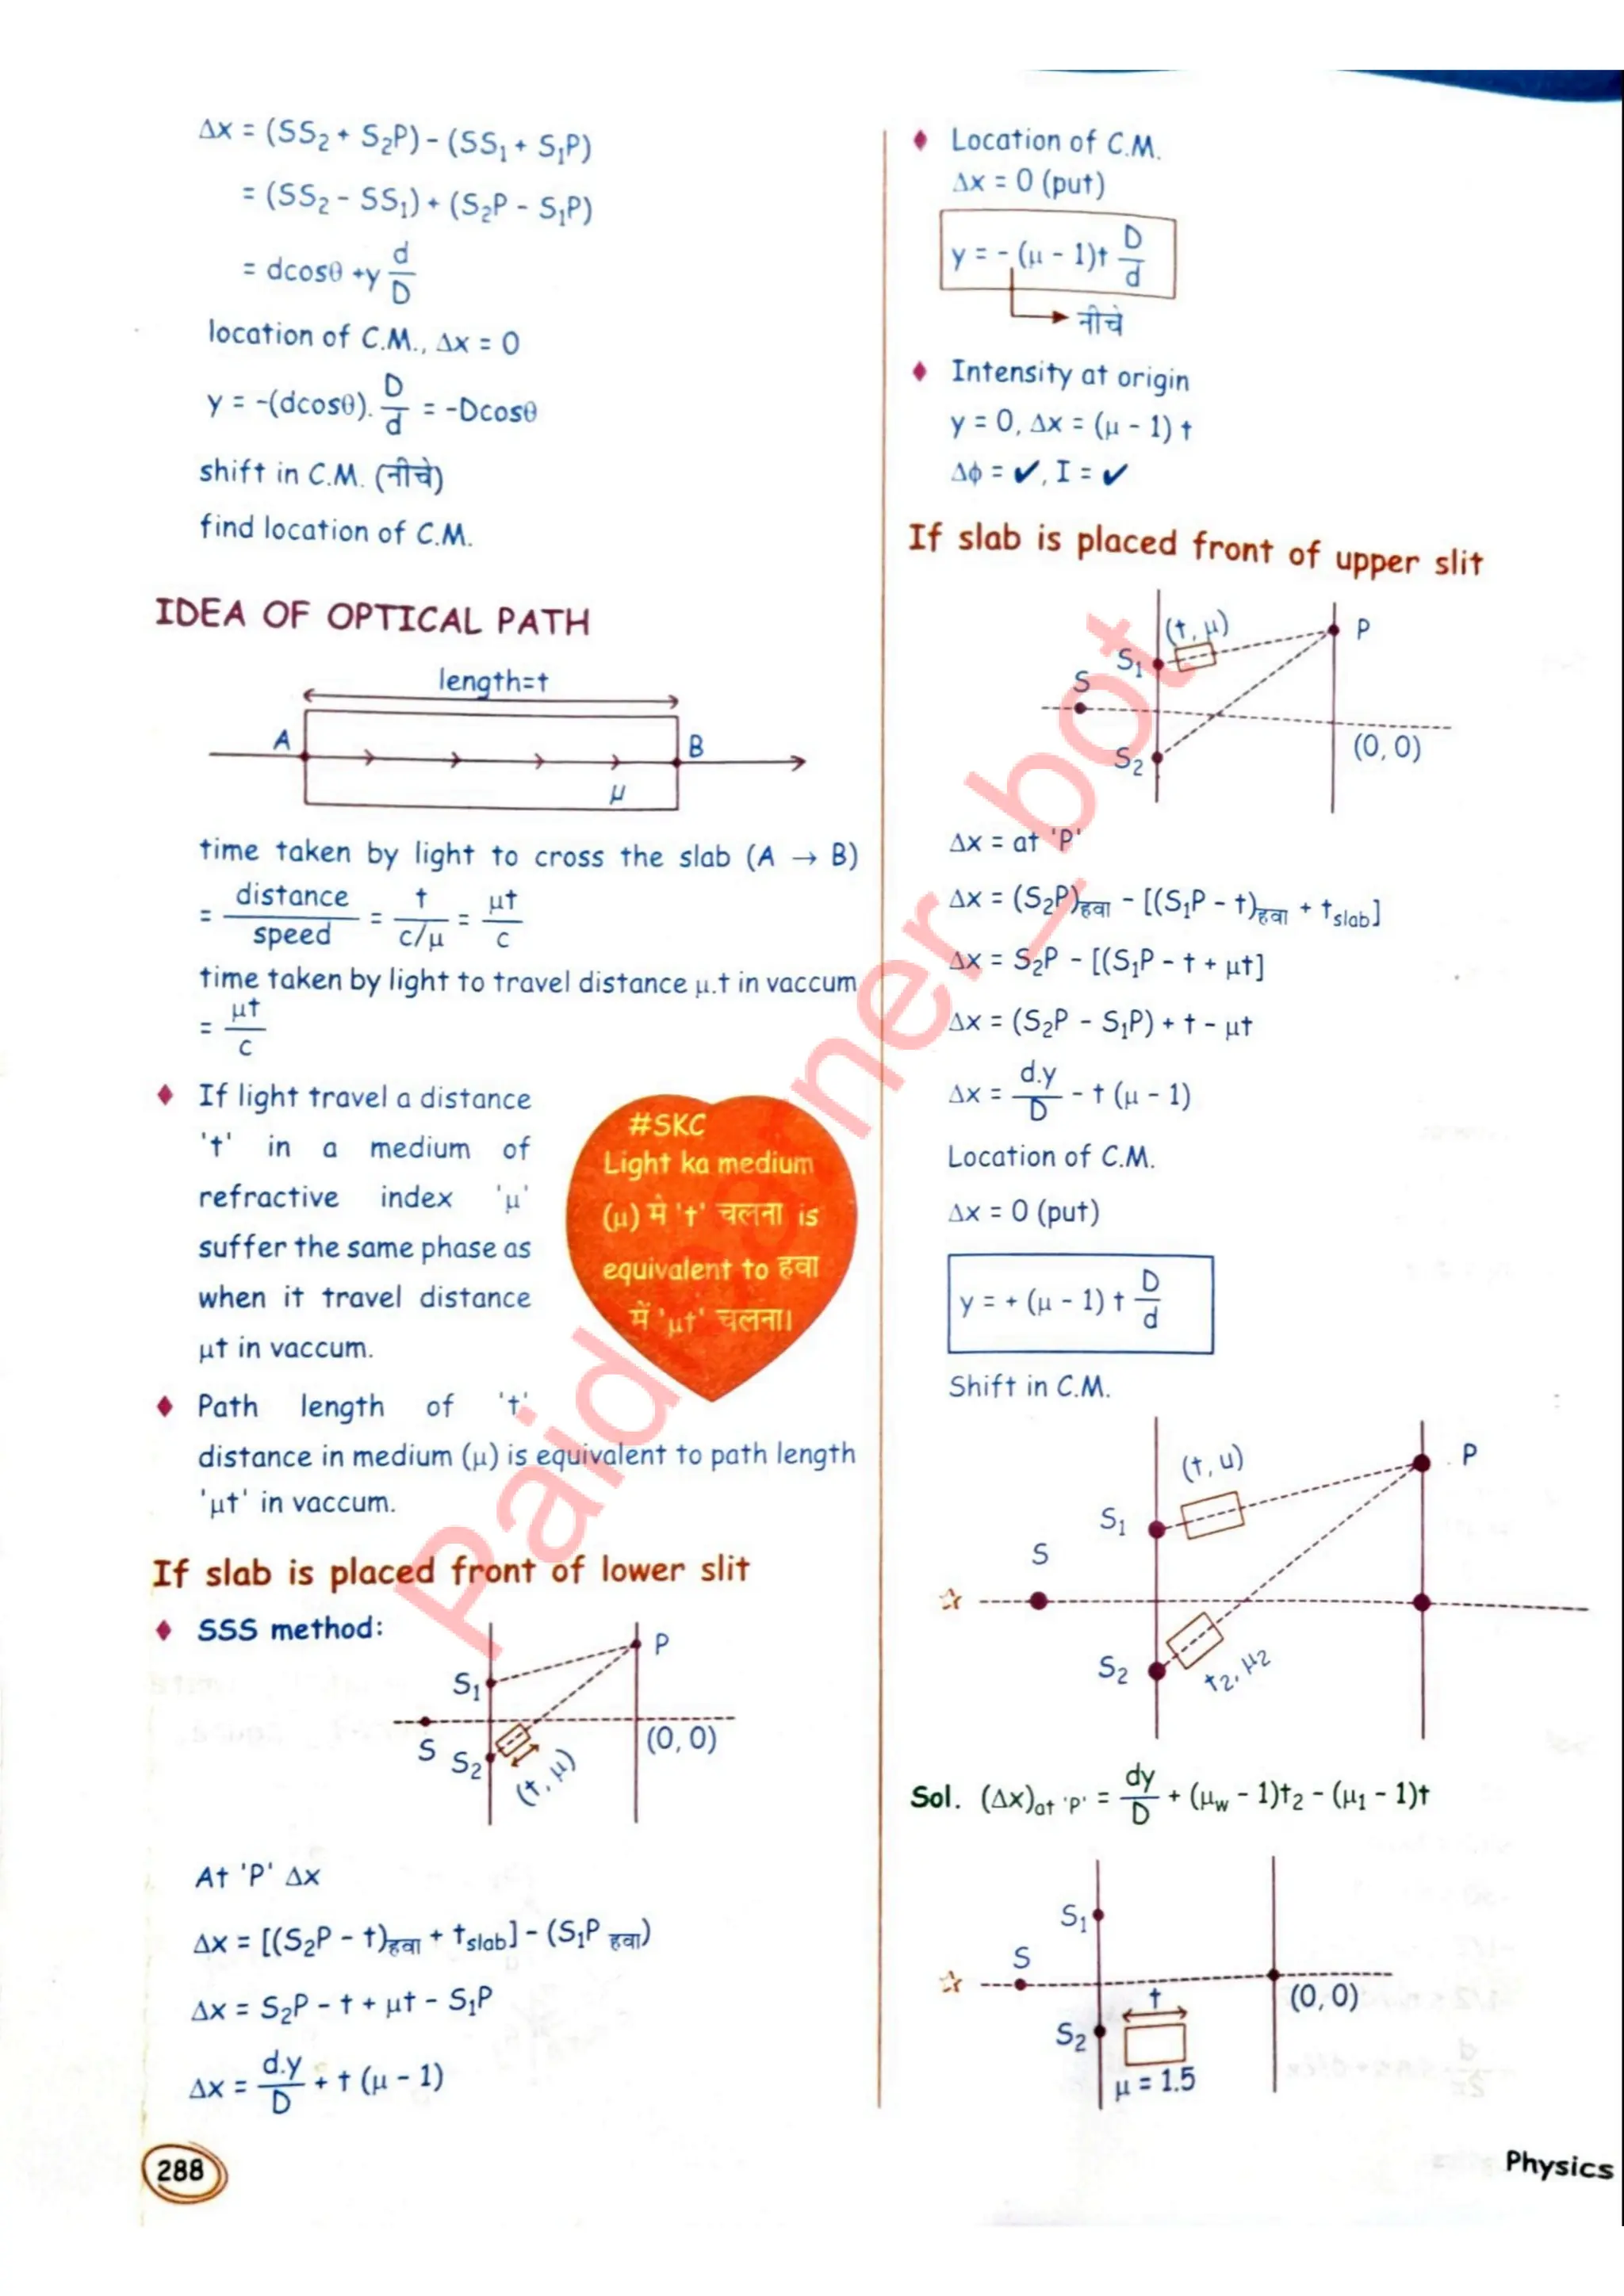 Δx = (SS₂ + S₂P) - (SS₁ + S₁P)
= (SS₂ - SS₁) + (S₂P - S₁P)
= dcosθ +y d/D
location of C.M., Δx = 0
y = -(dcosθ). D/d = -Dcosθ
shift in C.M. (नीचे)
find location of C.M.
IDEA OF OPTICAL PATH
length=t
A
B
μ
time taken by light to cross the slab (A → B)
= distance/speed = t/c/μ = μt/c
time taken by light to travel distance μ.t in vaccum
= μt/c
♦ If light travel a distance
't' in a medium of
refractive index 'μ'
suffer the same phase as
when it travel distance
μt in vaccum.
#SKC
Light ka medium
(μ) मे 't' चलना is
equivalent to हवा
में 'μt' चलना।
♦ Path length of 't'
distance in medium (μ) is equivalent to path length
'μt' in vaccum.
If slab is placed front of lower slit
♦ SSS method:
P
S₁
(0, 0)
S
S₂
(t, μ)
At 'P' Δx
Δx = [(S₂P - t)हवा + tslab] - (S₁P हवा)
Δx = S₂P - t + μt - S₁P
Δx = d.y/D + t (μ - 1)
288
♦ Location of C.M.
Δx = 0 (put)
y = - (μ - 1)t D/d
नीचे
♦ Intensity at origin
y = 0, Δx = (μ - 1) t
Δϕ = ✔, I = ✔
If slab is placed front of upper slit
(t, μ)
P
S₁
S
(0, 0)
S₂
Δx = at 'P'
Δx = (S₂P)हवा - [(S₁P - t)हवा + tslab]
Δx = S₂P - [(S₁P - t + μt]
Δx = (S₂P - S₁P) + t - μt
Δx = d.y/D - t (μ - 1)
Location of C.M.
Δx = 0 (put)
y = + (μ - 1) t D/d
Shift in C.M.
(t, u)
P
S₁
S
S₂
t₂, μ₂
Sol. (Δx)at 'P' = dy/D + (μw - 1)t₂ - (μ₁ - 1)t
S₁
S
(0, 0)
t
S₂
μ = 1.5
Physics